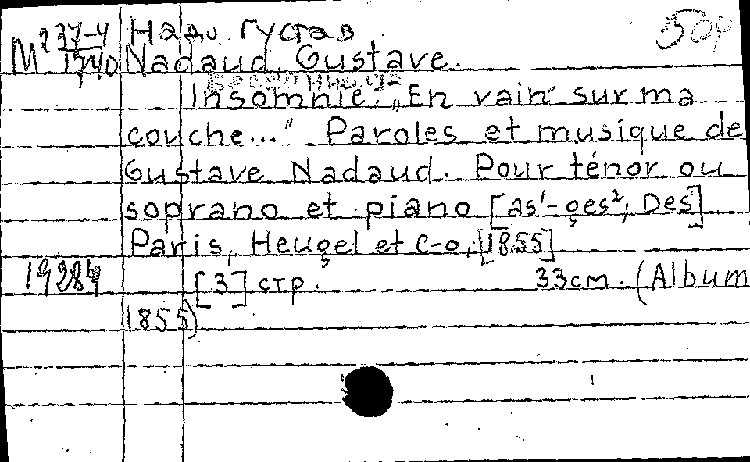 М² 37-4 Надо Густав 504
1740 Nadaud, Gustave.
Insomnie. "En vain sur ma
couche..." Paroles et musique de
Gustave Nadaud. Pour ténor ou
soprano et piano [as¹-ges², Des]
Paris, Heugel et C-o, [1855]
19284 [3] стр. 33см. (Album
1855)